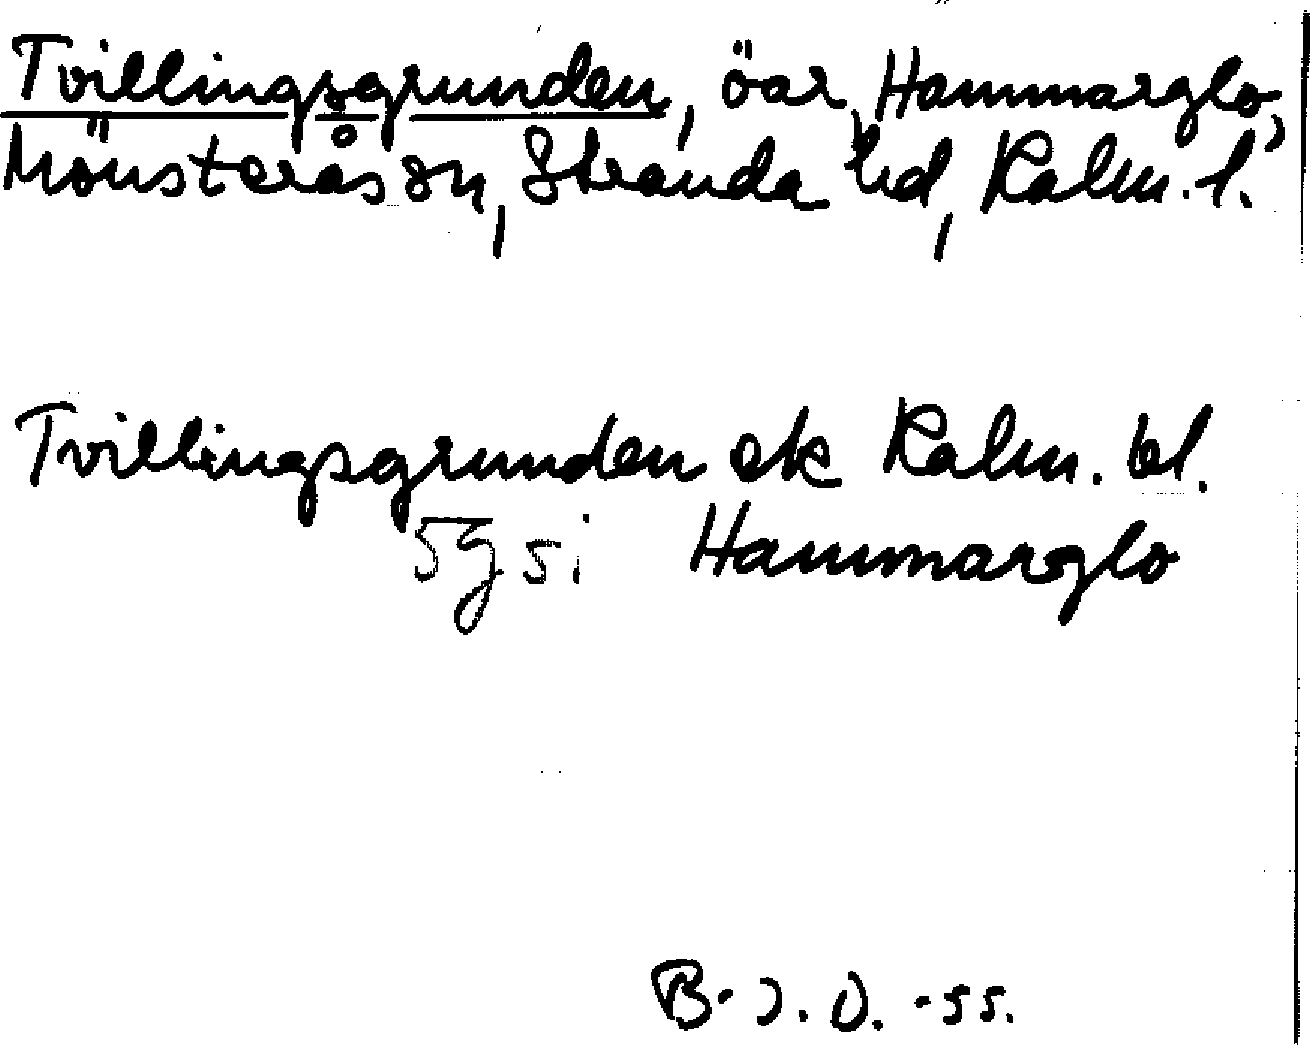 Tvillingsgrunden, öar, Hammarglo,
Mönsterås sn, Stranda hd, Kalm. l.
Tvillingsgrunden ek Kalm. bl.
5g5i Hammarglo
B. J. O. -55.